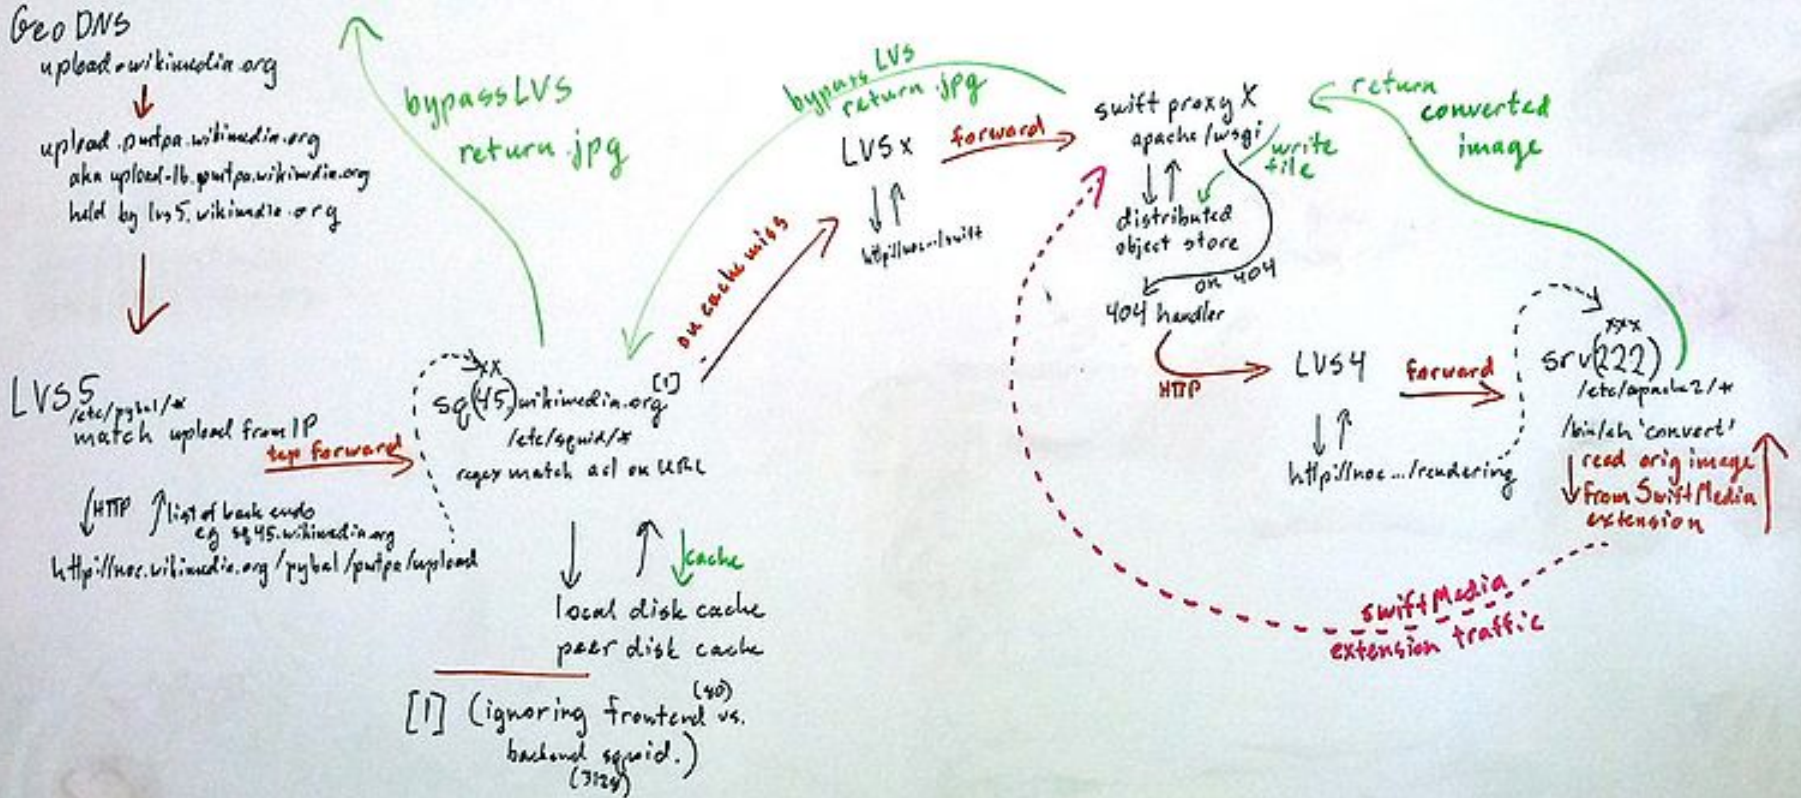 Geo DNS
upload.wikimedia.org
upload.pmtpa.wikimedia.org
aka upload-lb.pmtpa.wikimedia.org
held by lvs5.wikimedia.org
LVS5
/etc/pybal/*
match upload from IP
tcp forward
HTTP
list of back ends
eg sq45.wikimedia.org
http://noc.wikimedia.org/pybal/pmtpa/upload
bypass LVS
return .jpg
xx
sq(45)wikimedia.org [1]
/etc/squid/*
regex match acl on URL
cache
local disk cache
peer disk cache
[1] (ignoring frontend (80) vs.
backend squid.)
(3128)
on cache miss
bypass LVS
return .jpg
LVS x
http://noc.../swift
forward
swift proxy X
apache/wsgi
write
file
distributed
object store
on 404
404 handler
HTTP
LVS4
http://noc.../rendering
forward
return
converted
image
xxx
srv(222)
/etc/apache2/*
/bin/sh 'convert'
read orig image
from SwiftMedia
extension
swiftMedia
extension traffic